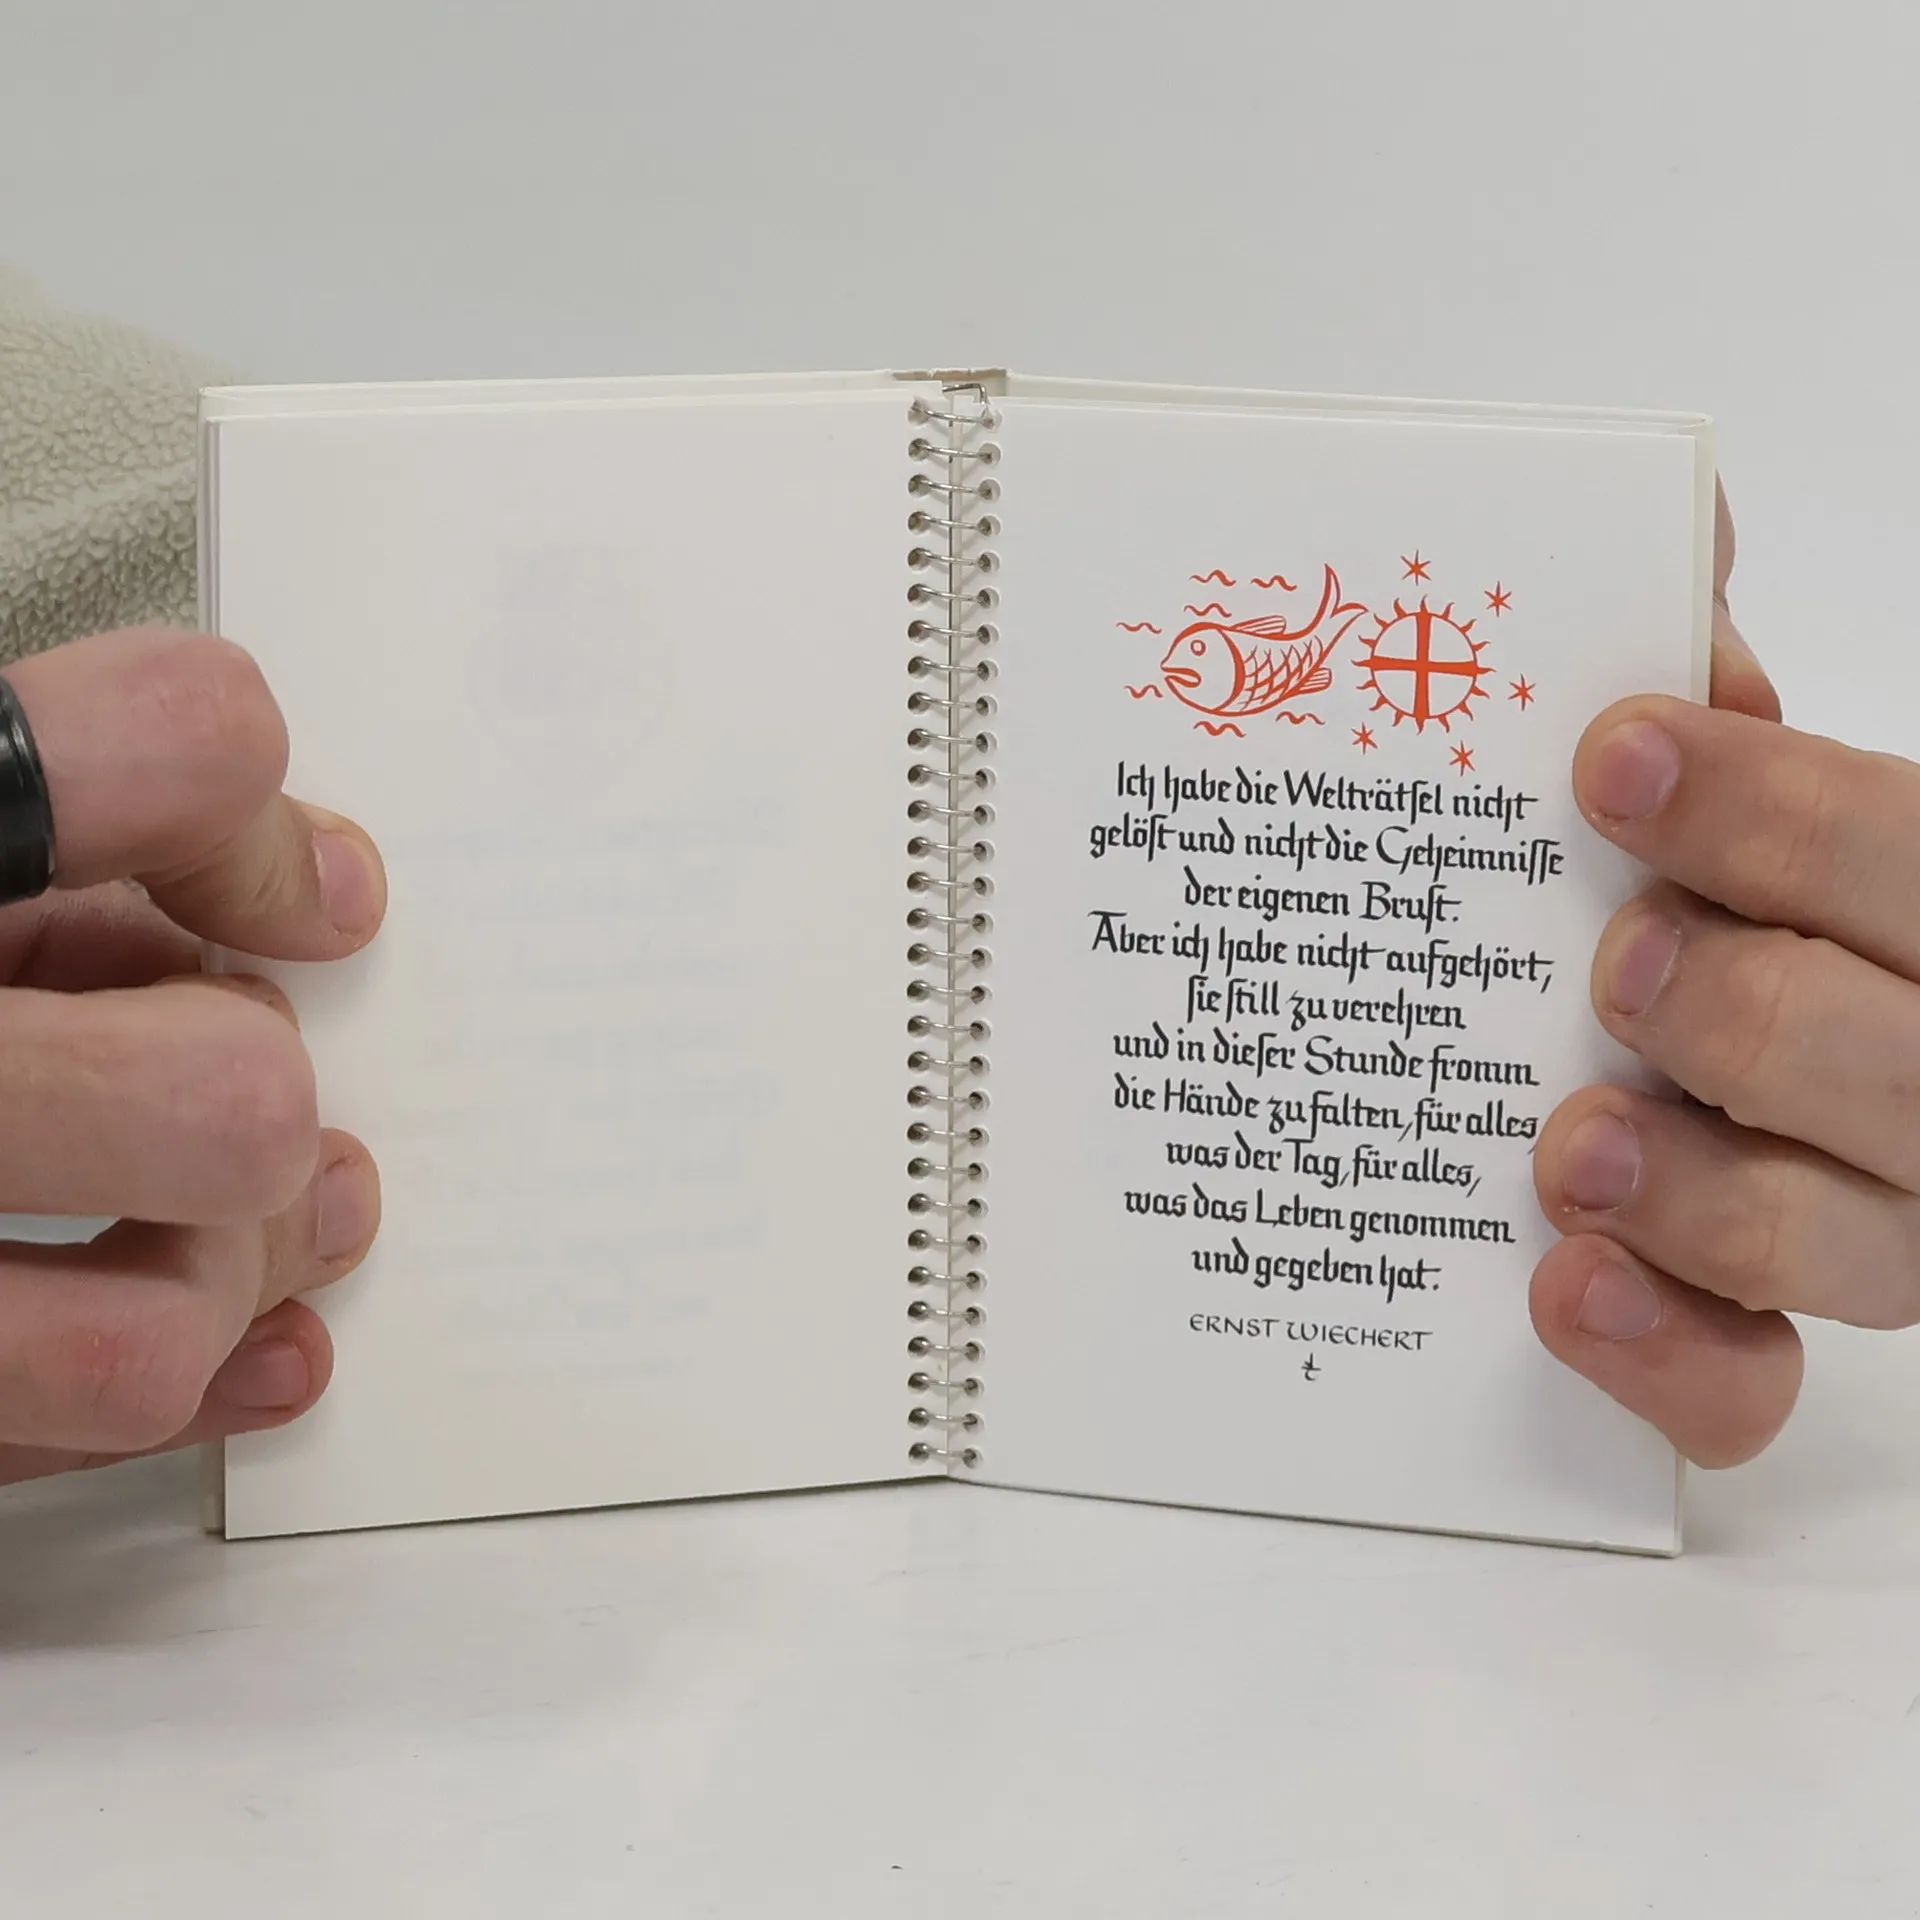 Ich habe die Welträtſel nicht
gelöſt und nicht die Geheimniſſe
der eigenen Bruſt.
Aber ich habe nicht aufgehört,
ſie ſtill zu verehren
und in dieſer Stunde fromm
die Hände zu falten, für alles,
was der Tag, für alles,
was das Leben genommen
und gegeben hat.
ERNST WIECHERT